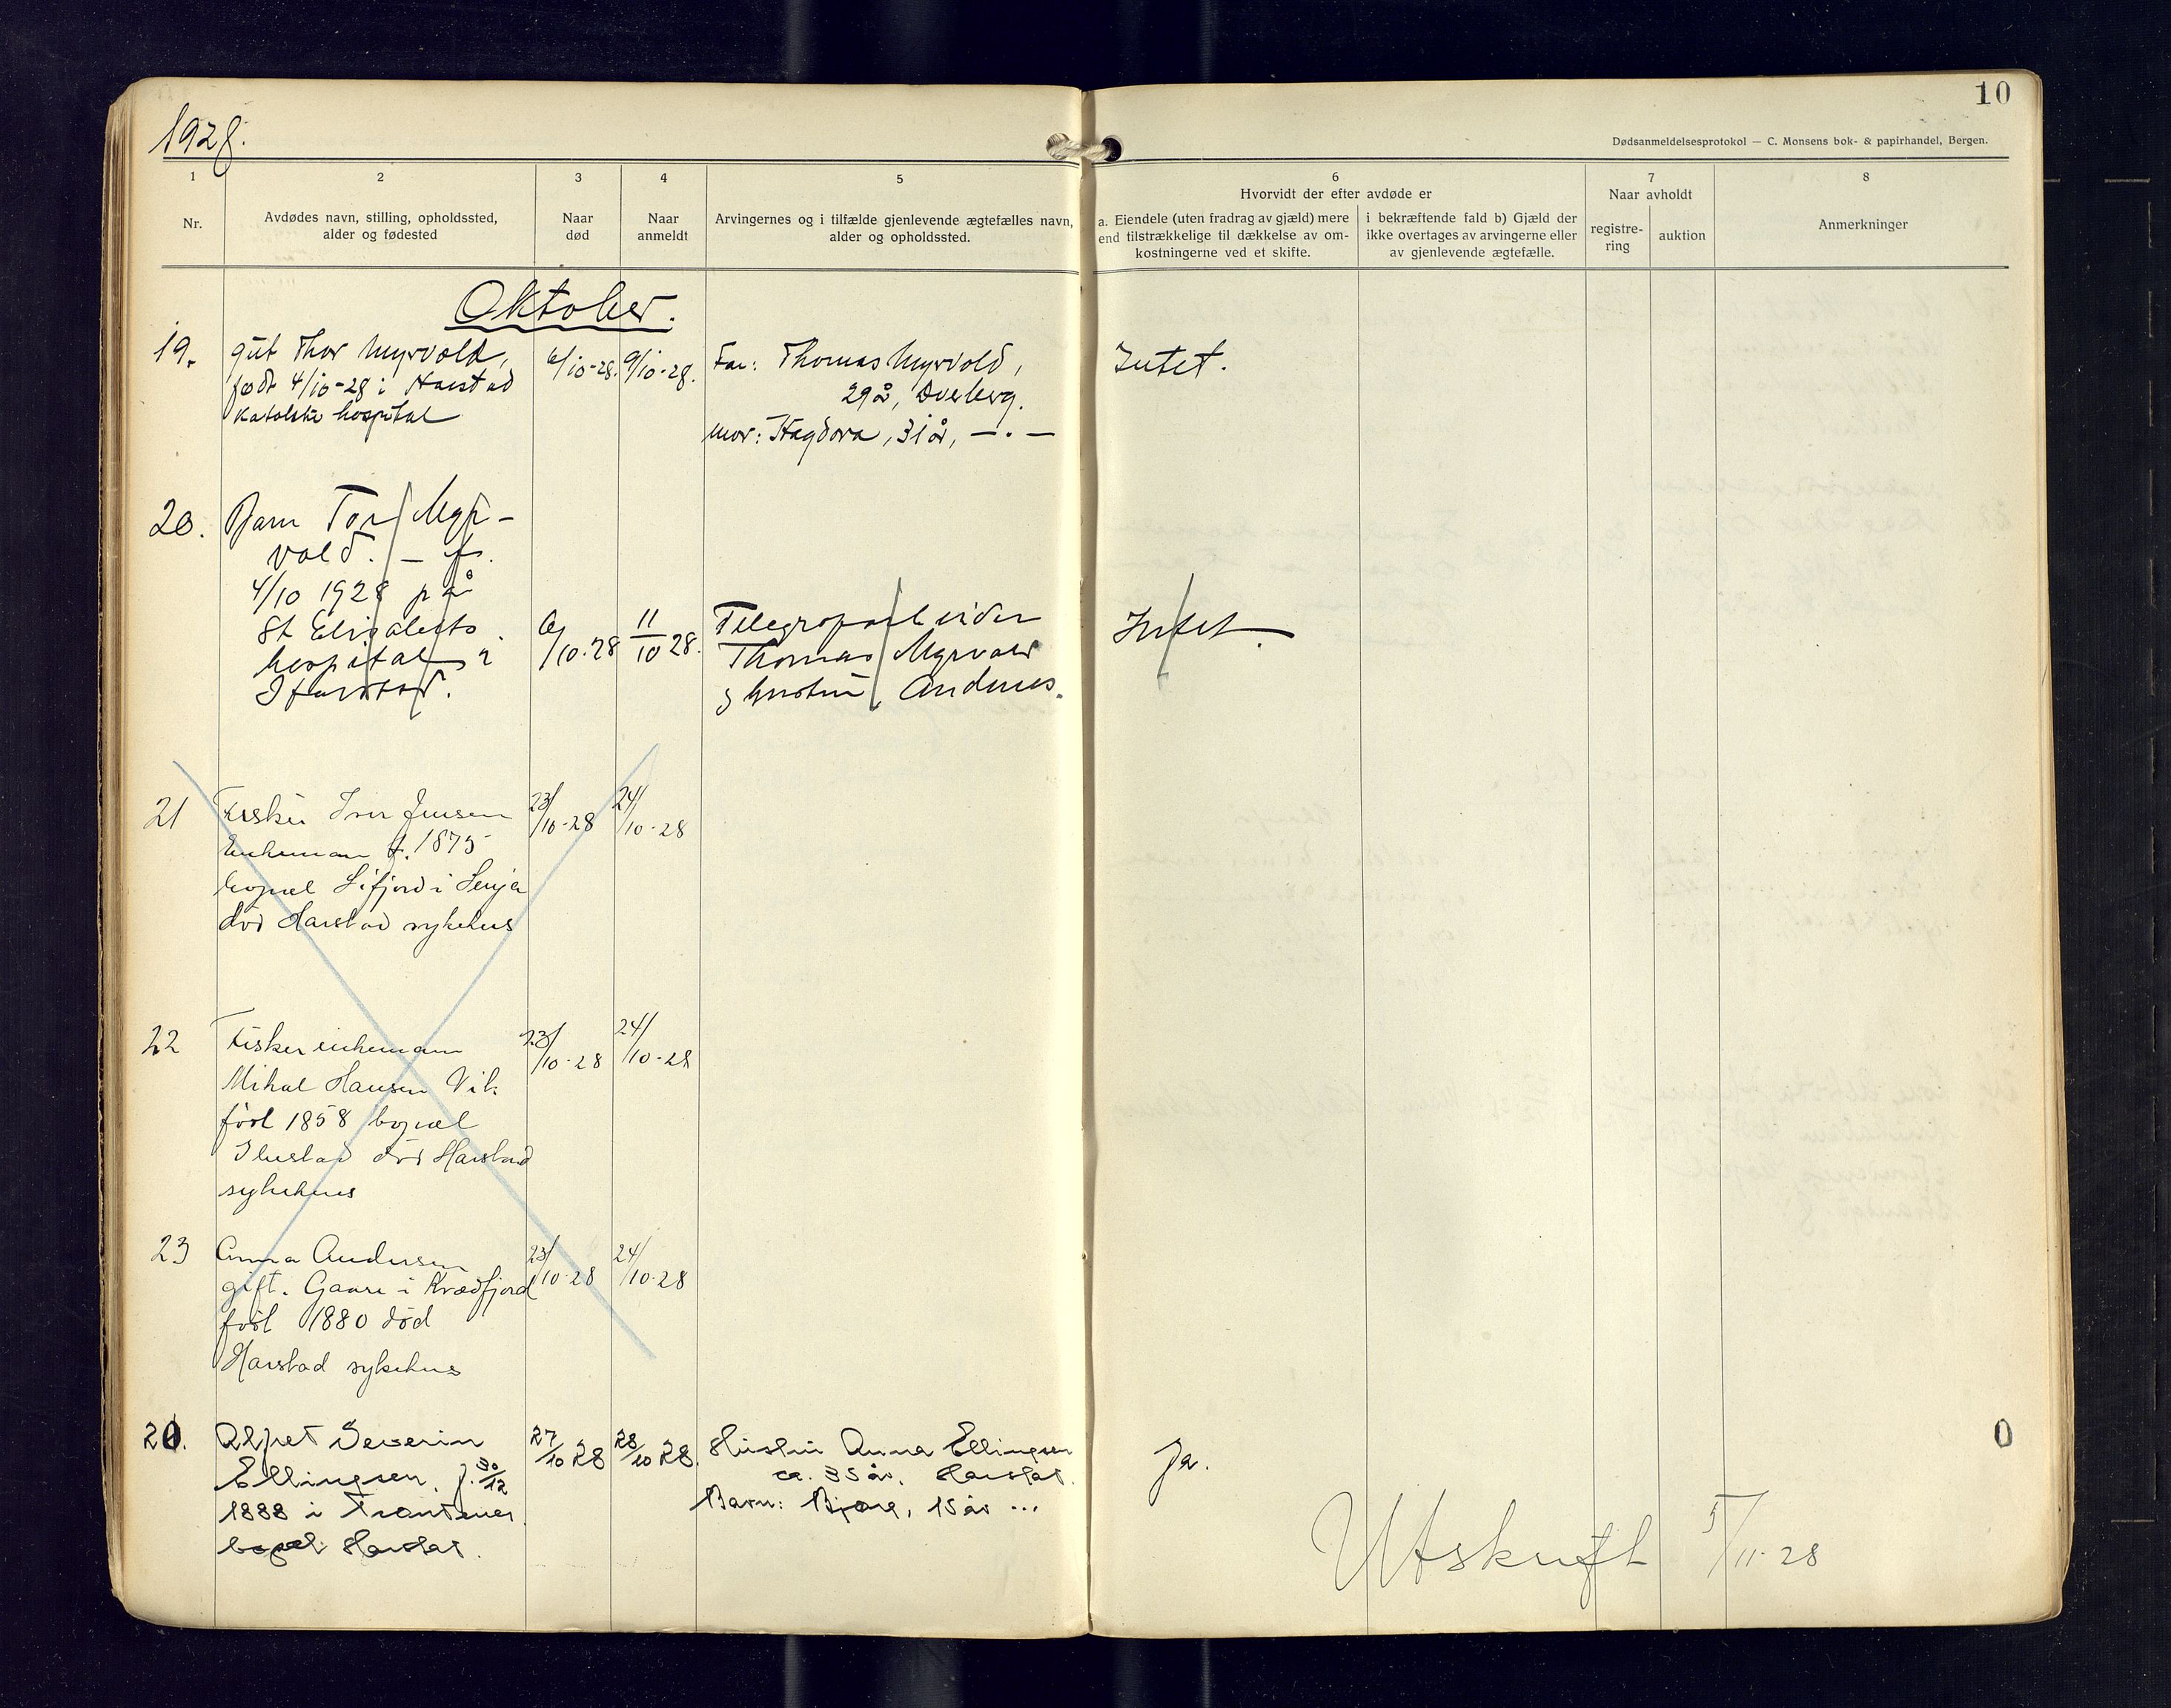 1928.
10
Dødsanmeldelsesprotokol — C. Monsens bok- & papirhandel, Bergen.
1
2
3
4
5
6
7
8
Nr.
Avdødes navn, stilling, opholdssted,
alder og fødested
Naar
død
Naar
anmeldt
Arvingernes og i tilfælde gjenlevende ægtefælles navn,
alder og opholdssted.
Hvorvidt der efter avdøde er
a. Eiendele (uten fradrag av gjæld) mere
end tilstrækkelige til dækkelse av om-
kostningerne ved et skifte.
i bekræftende fald b) Gjæld der
ikke overtages av arvingerne eller
av gjenlevende ægtefælle.
Naar avholdt
registre-
ring
auktion
Anmerkninger
Oktober.
19.
gut Thor Myrvold,
født 4/10-28 i Harstad
katolske hospital
6/10-28.
9/10-28.
Far: Thomas Myrvold,
29 å, Överberg.
Mor: Hagdora, 31 år, — . —
Intet.
20.
Barn Tor Myr-
vold. — f.
4/10 1928 på
St Elisabeths
hospital i
Harstad.
6/10.28
11/10 28.
Thomas Myrvold
Andenes.
Intet.
21
Fisker Iver Jensen
Enkeman f. 1875
bopæl Sifjord i Senja
död Harstad sykehus
23/10-28
24/10-28
22
Fisker enkemann
Mikal Hansen Vik
föd 1858 bopæl
död Harstad
sykehus
23/10-28
24/10-28
23
Anna Andersen
gift. Gaare i Kvædfjord
föd 1880 död
Harstad sykehus
23/10-28
24/10-28
20.
Alfret Severin
Ellingsen, f. 30/12
1888 i Trantenes
bopæl Harstat.
27/10 28
28/10 28.
Hustru Anna Ellingsen
ca. 35 år, Harstat.
Barn: 15 år ...
Ja.
0
Utskrift 5/11-28